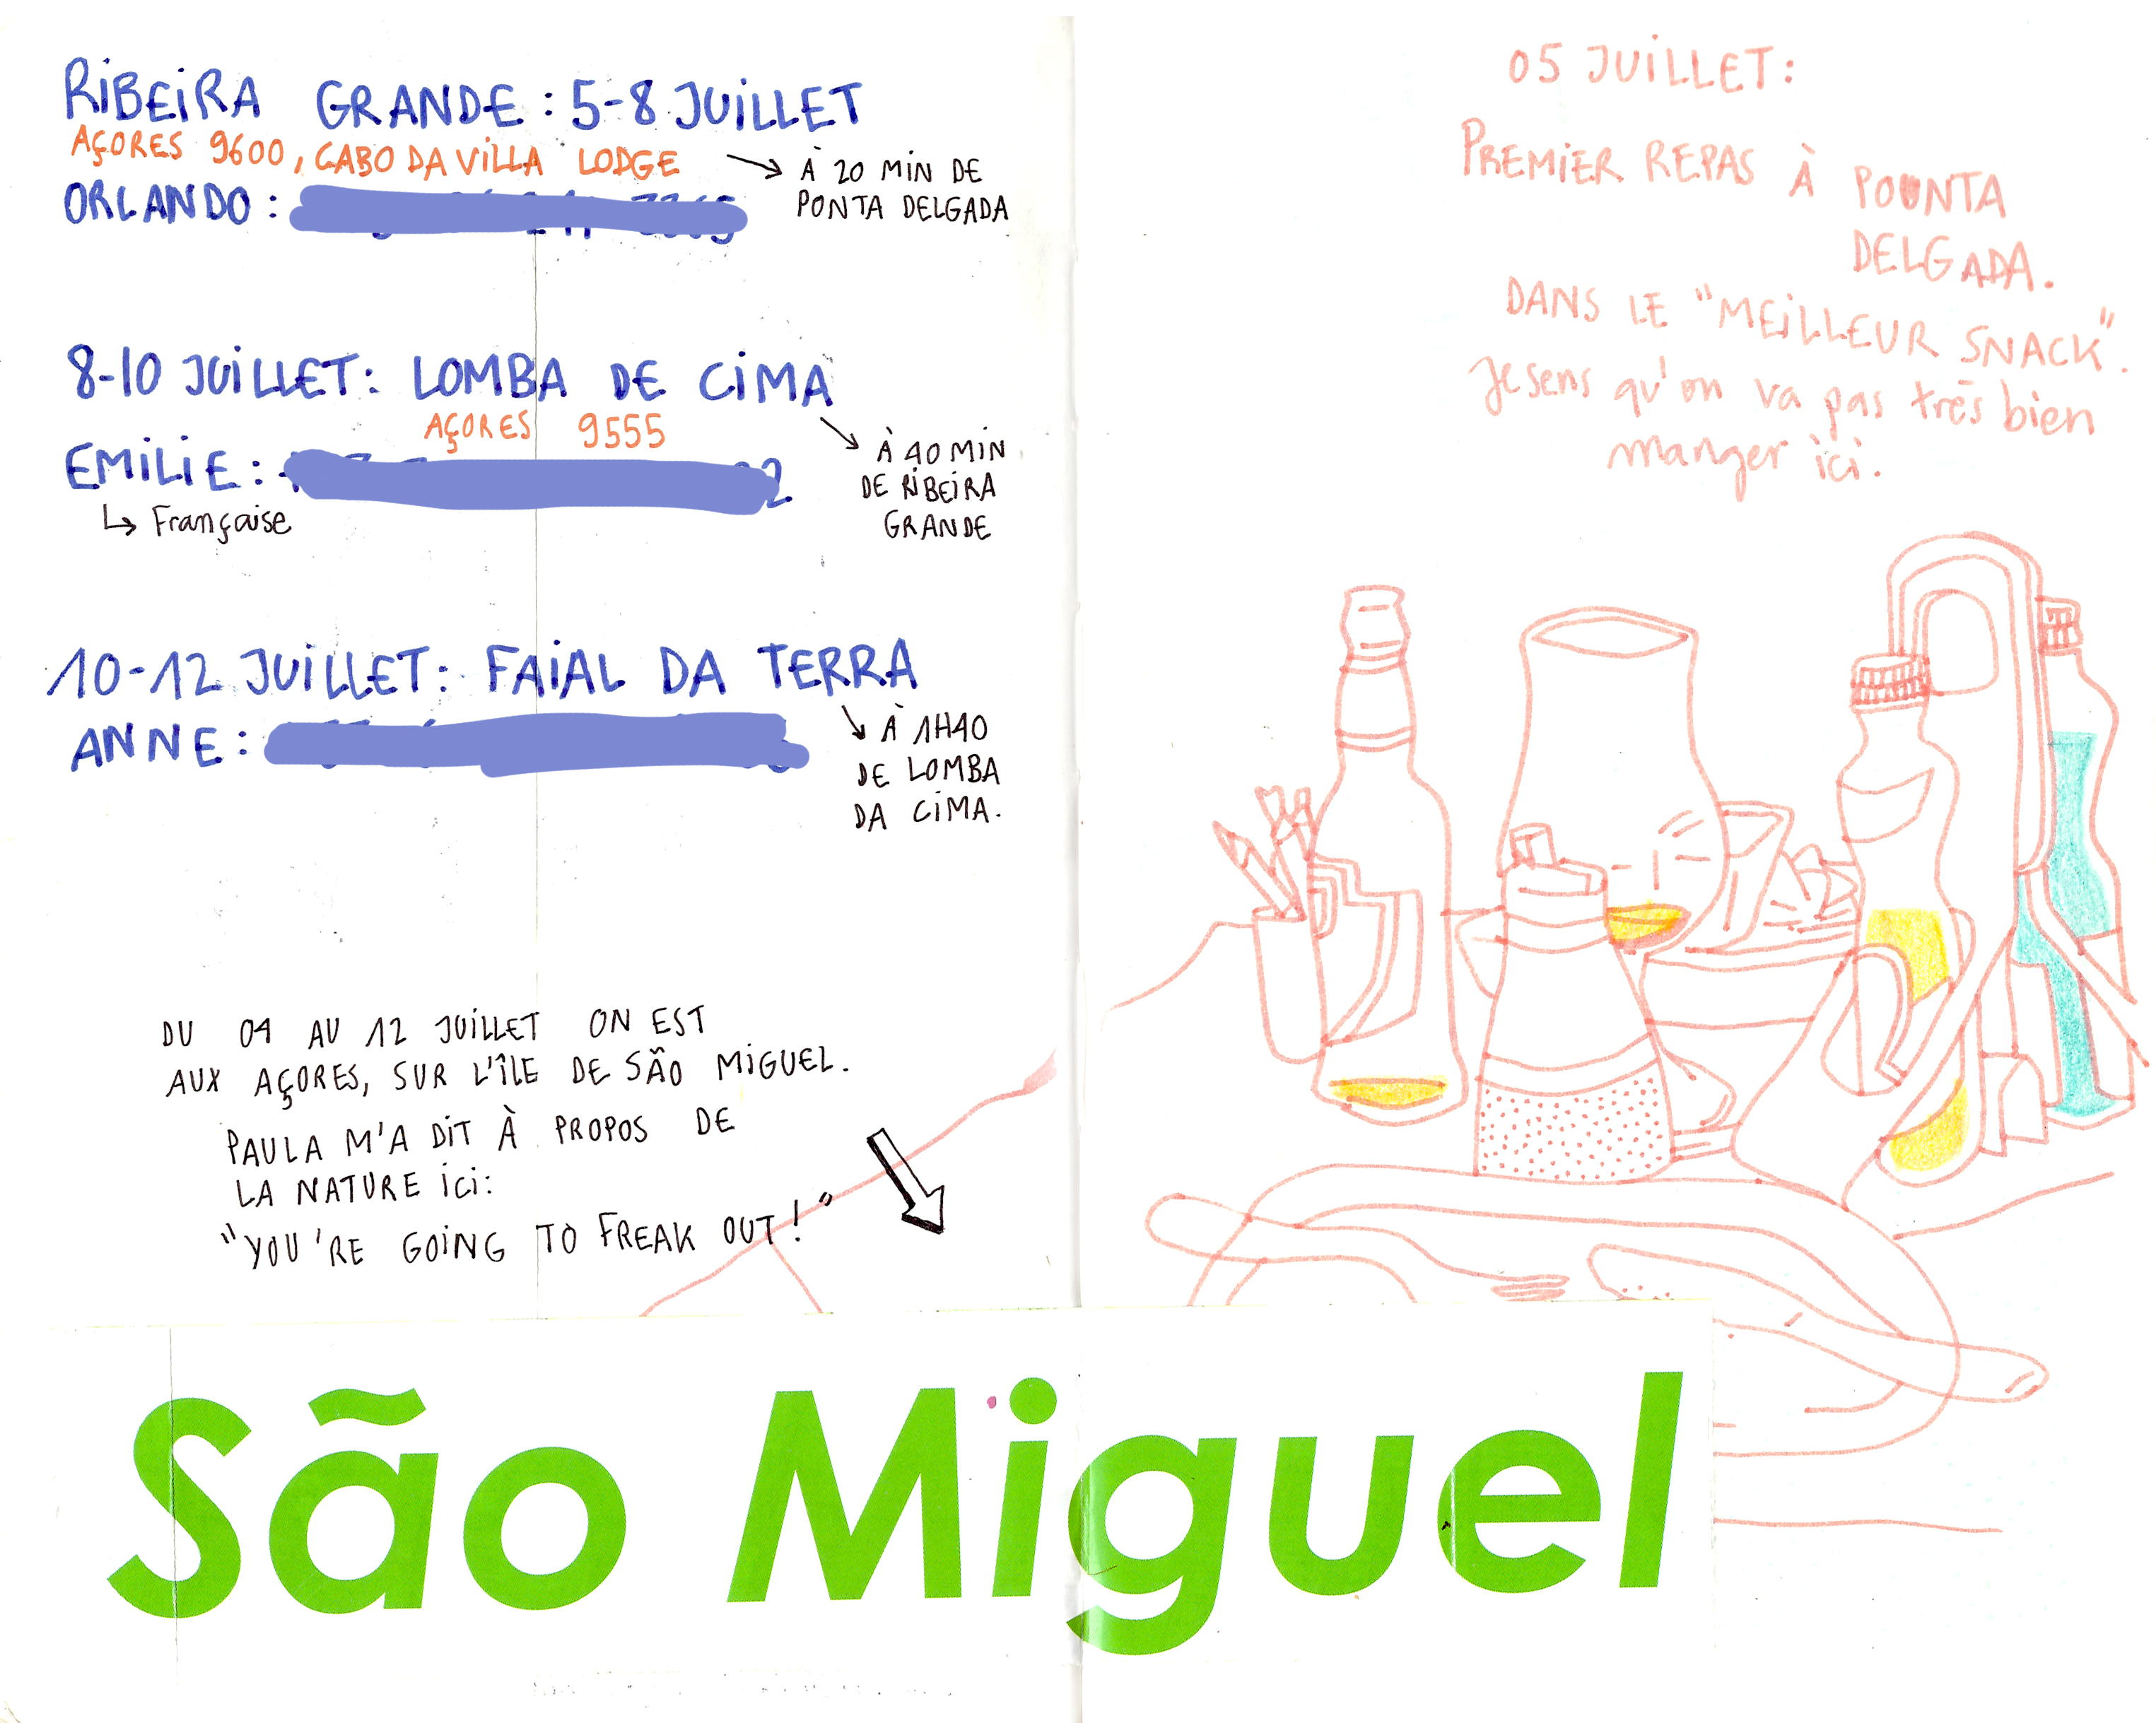 RiBEiRA GRANDE : 5-8 JUiLLET
AÇORES 9600, CABO DA ViLLA LODGE
À 20 MiN DE
PONTA DELGADA
ORLANDO :
8-10 JUiLLET : LOMBA DE CiMA
AÇORES 9555
À 40 MiN
DE RiBEiRA
GRANDE
EMiLiE :
↳ Française
10-12 JUiLLET : FAiAL DA TERRA
ANNE :
À 1H40
DE LOMBA
DA CiMA.
DU 04 AU 12 JUiLLET ON EST
AUX AÇORES, SUR L'ÎLE DE SÃO MiGUEL.
PAULA M'A DiT À PROPOS DE
LA NATURE iCi :
"YOU'RE GOiNG TO FREAK OUT ! "
05 JUiLLET :
PREMiER REPAS À POUNTA
DELGADA.
DANS LE "MEiLLEUR SNACK".
Je sens qu'on va pas très bien
manger ici.
São Miguel